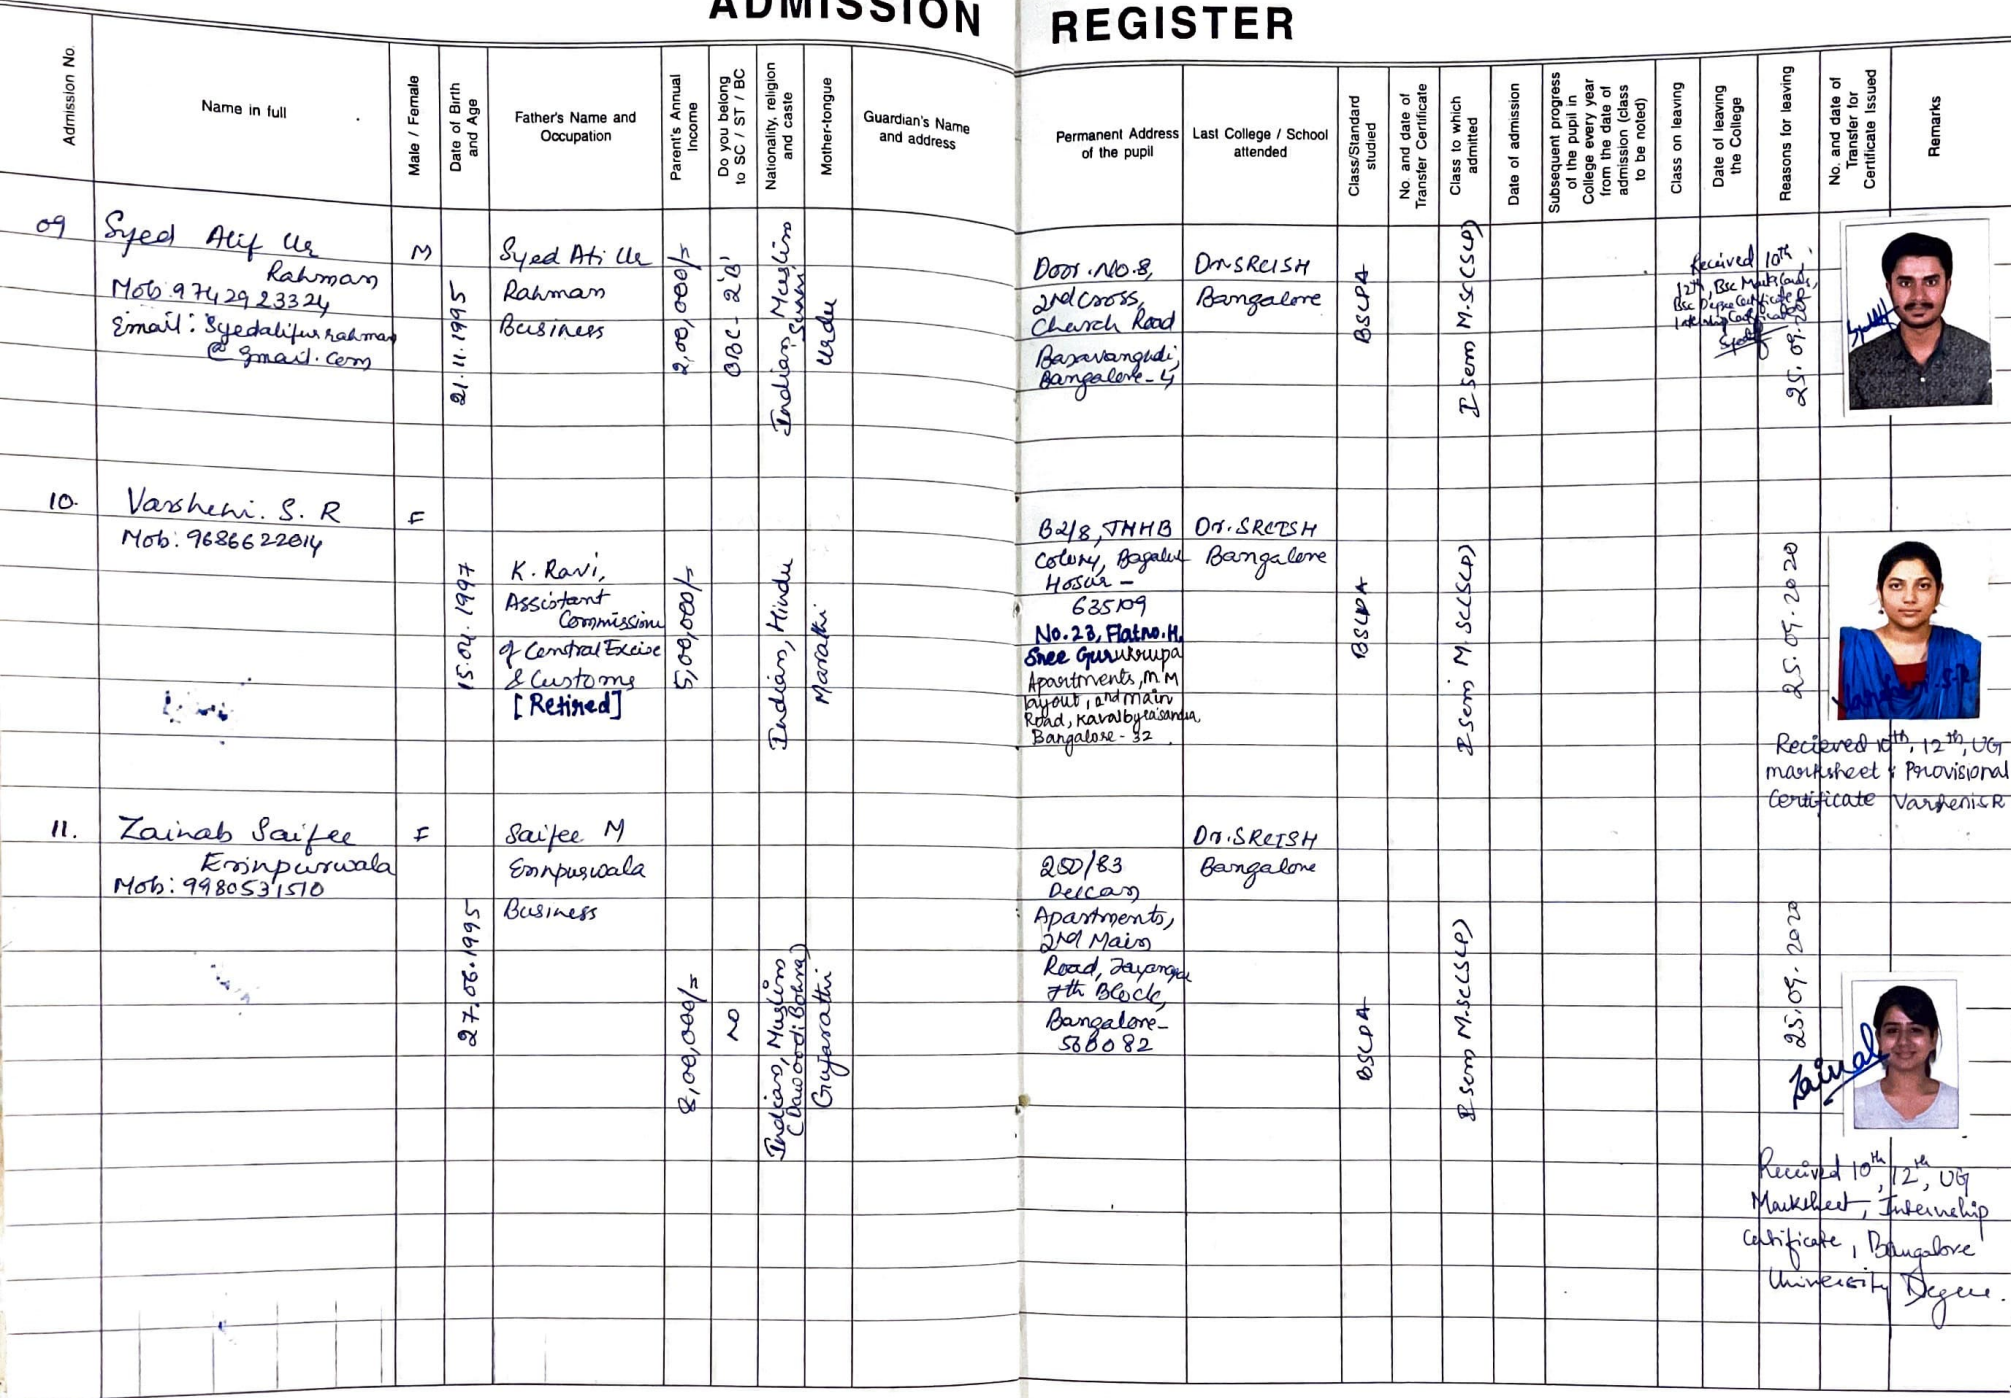 ADMISSION REGISTER
Admission No.
Name in full
Male / Female
Date of Birth
and Age
Father's Name and
Occupation
Parent's Annual
Income
Do you belong
to SC / ST / BC
Nationality, religion
and caste
Mother-tongue
Guardian's Name
and address
Permanent Address
of the pupil
Last College / School
attended
Class/Standard
studied
No. and date of
Transfer Certificate
Class to which
admitted
Date of admission
Subsequent progress
of the pupil in
College every year
from the date of
admission (class
to be noted)
Class on leaving
Date of leaving
the College
Reasons for leaving
No. and date of
Transfer for
Certificate Issued
Remarks
09
Syed Alif Ur
Rahman
Mob: 9742923324
Email: Syedalifurrahman
@gmail.com
M
21.11.1995
Syed Ati Ur
Rahman
Business
2,00,000/=
OBC - 2'B'
Indian, Muslim
Sunni
Urdu
Door.No.8,
2nd Cross,
Church Road
Basavangudi,
Bangalore-4
Dr.SRCISH
Bangalore
BSLPA
I sem M.Sc(SLP)
Received 10th,
12th, Bsc Marks Cards,
Bsc Degree Certificate
Internship Certificate
25.09.2020
10.
Varsheni. S. R
Mob: 9686622614
F
15.04.1997
K. Ravi,
Assistant
Commission
of Central Excise
& Customs
[Retired]
5,00,000/=
Indian, Hindu
Marathi
B2/8, TNHB
Colony, Bagalur
Hosur -
635109
No.23, Flatno.H,
Sree Gurukrupa
Apartments, MM
layout, 2nd main
Road, Kavalbyrasandra,
Bangalore-32
Dr.SRCISH
Bangalore
BSLPA
I sem M.Sc(SLP)
25.09.2020
Varsheni.S.R
Recieved 10th, 12th, UG
marksheet & Provisional
Certificate VarsheniSR
11.
Zainab Saifee
Erinpurwala
Mob: 9980531510
F
27.06.1995
Saifee M
Erinpurwala
Business
8,00,000/=
NO
Indian, Muslim
(Dawoodi Bohra)
Gujarathi
200/83
Deccan
Apartments,
2nd Main
Road, Jayanagar
7th Block,
Bangalore-
560082
Dr.SRCISH
Bangalore
BSLPA
I sem M.Sc(SLP)
25.09.2020
Zainab
Received 10th, 12th, UG
Marksheet, Internship
Certificate, Bangalore
University Degree.